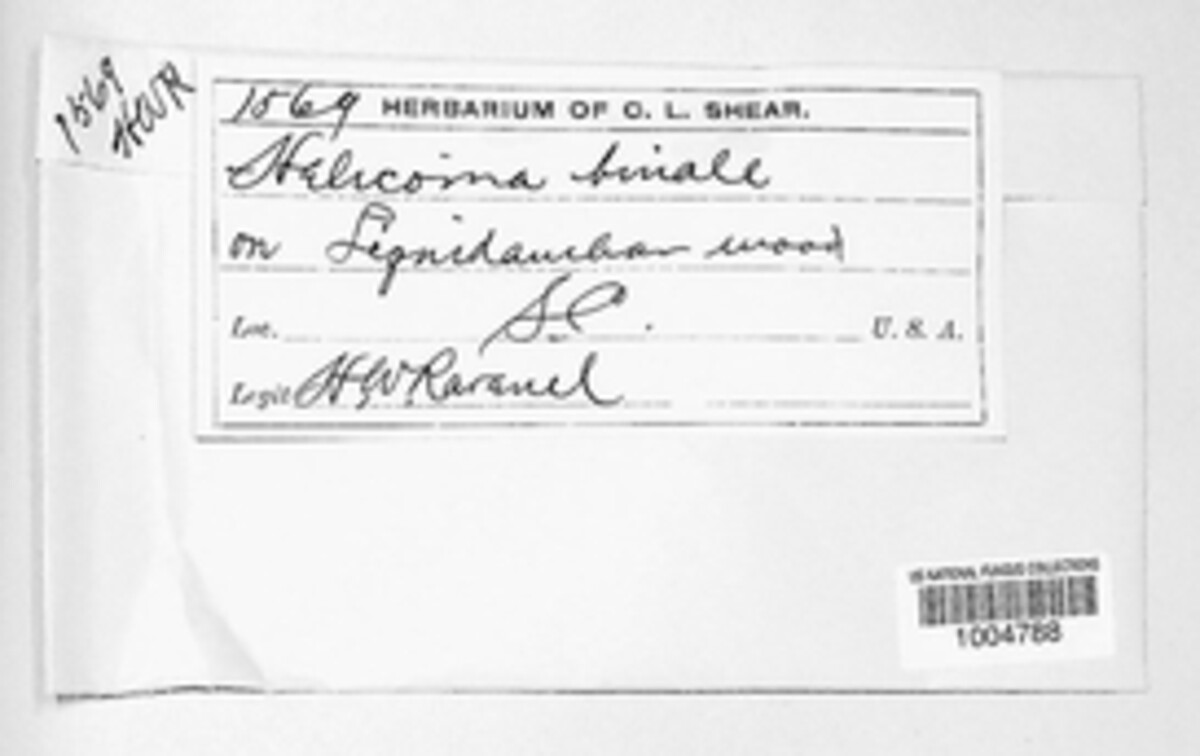 1569
HWR
1569 HERBARIUM OF C. L. SHEAR.
Helicoma binale
on Liquidambar wood
Loc. S.C. U. S. A.
Legit H W Ravenel
US NATIONAL FUNGUS COLLECTIONS
1004788